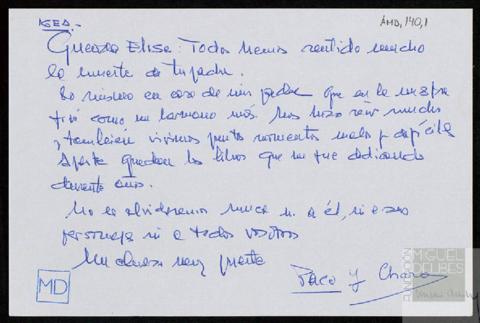 IGEA.-
AMD, 140, 1
Querida Elisa: Todos hemos sentido mucho
la muerte de tu padre.
Lo mismo en casa de mis padres que en la nuestra
como un hermano más. Nos hizo reír mucho
y también vivimos juntos momentos malos y difíciles
Aparte quedan los libros que me fue dedicando
durante años.
No os olvidaremos nunca ni a él, ni a sus
personajes ni a todos vosotros
Un abrazo muy fuerte
Paco y Charo
MD
FUNDACIÓN
MIGUEL
DELIBES